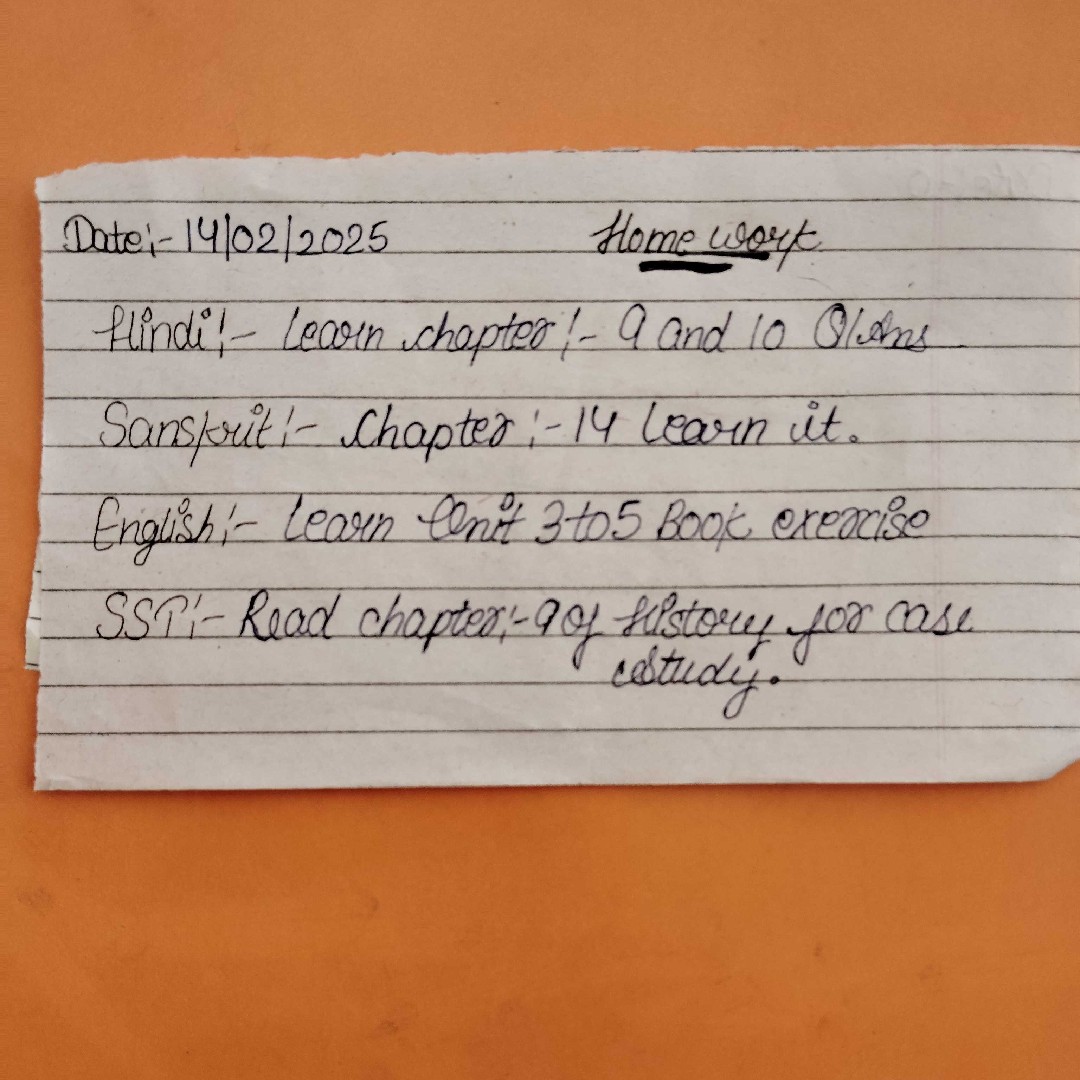 Date:- 14/02/2025 Home work
Hindi:- Learn chapter:- 9 and 10 Q/Ans
Sanskrit:- Chapter:- 14 learn it.
English:- Learn Unit 3 to 5 Book exercise
SST:- Read chapter:- 9 of History for case
study.